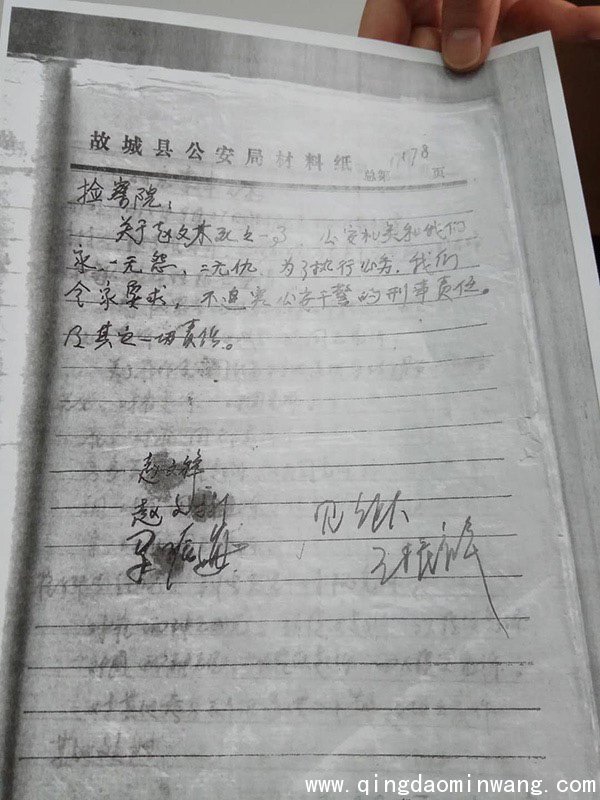 故城县公安局材料纸
总第 178 页
检察院:
关于赵文东死之一事,公安机关和我们
家,一无怨,二无仇,为了执行公务,我们
全家要求,不追究公安干警的刑事责任。
及其它一切责任。
赵文
赵文
见证人
王振
www.qingdaominwang.com